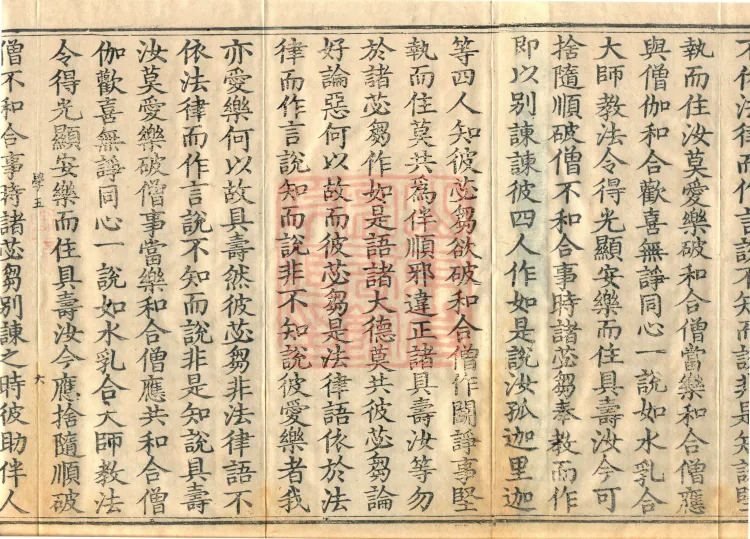 不依法律而作言說不知而說非是知說堅
執而住汝莫愛樂破和合僧當樂和合僧應
與僧伽和合歡喜無諍同心一說如水乳合
大師教法令得光顯安樂而住具壽汝今可
捨隨順破僧不和合事時諸苾芻奉教而作
即以別諫諫彼四人作如是說汝孤迦里迦
等四人知彼苾芻欲破和合僧作鬪諍事堅
執而住莫共為伴順邪違正諸具壽汝等勿
於諸苾芻作如是語諸大德莫共彼苾芻論
好論惡何以故而彼苾芻是法律語依於法
律而作言說知而說非不知說彼愛樂者我
亦愛樂何以故具壽然彼苾芻非法律語不
依法律而作言說不知而說非是知說具壽
汝莫愛樂破僧事當樂和合僧應共和合僧
伽歡喜無諍同心一說如水乳合大師教法
令得光顯安樂而住具壽汝今應捨隨順破
學五 六
僧不和合事時諸苾芻別諫之時彼助伴人